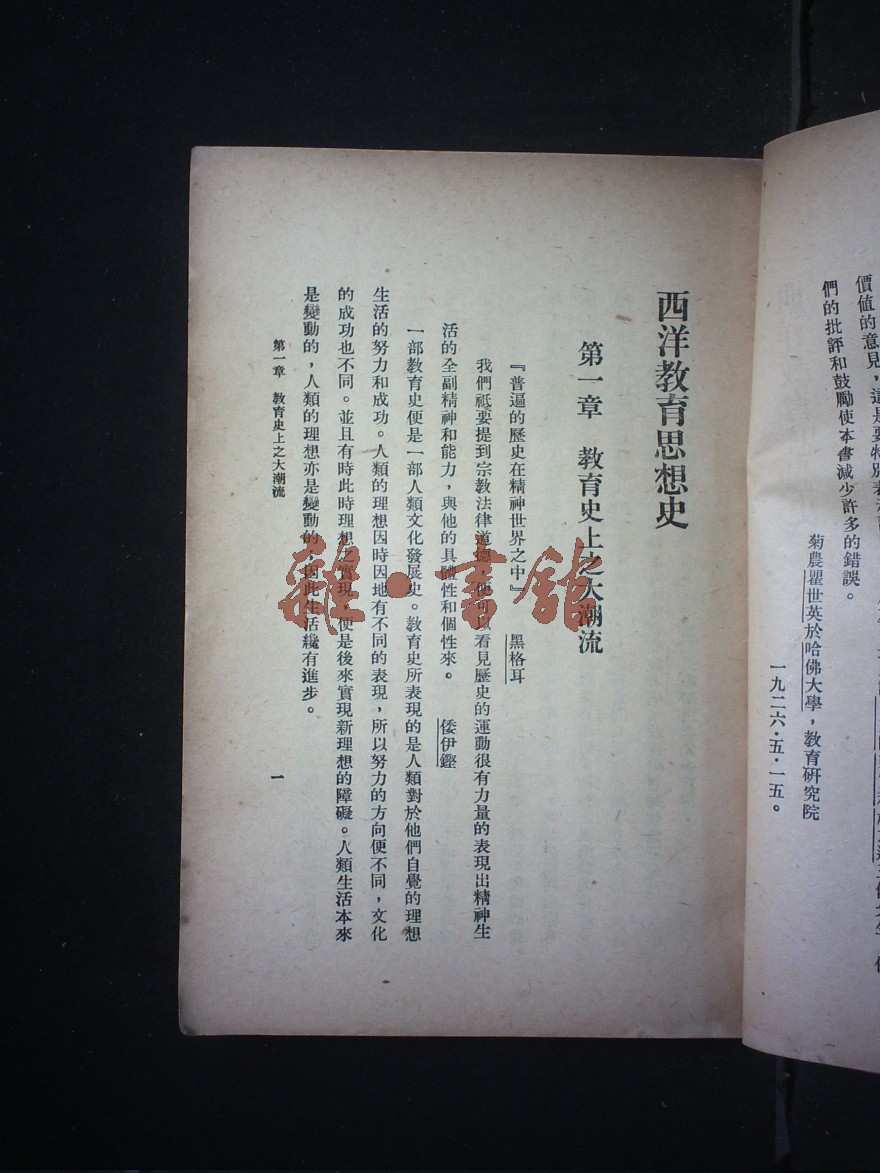 價值的意見，這是要特別表
們的批評和鼓勵使本書減少許多的錯誤。
菊農瞿世英於哈佛大學，教育研究院
一九二六·五·一五。
西洋教育思想史
第一章　教育史上之大潮流
『普遍的歷史在精神世界之中』　黑格耳
我們祇要提到宗教法律道德，便可以看見歷史的運動很有力量的表現出精神生
活的全副精神和能力，與他的具體性和個性來。　倭伊鏗
一部教育史便是一部人類文化發展史。教育史所表現的是人類對於他們自覺的理想
生活的努力和成功。人類的理想因時因地有不同的表現，所以努力的方向便不同，文化
的成功也不同。並且有時此時理想之實現，便是後來實現新理想的障礙。人類生活本來
是變動的，人類的理想亦是變動的，因此生活纔有進步。
第一章　教育史上之大潮流
一
雜·書館